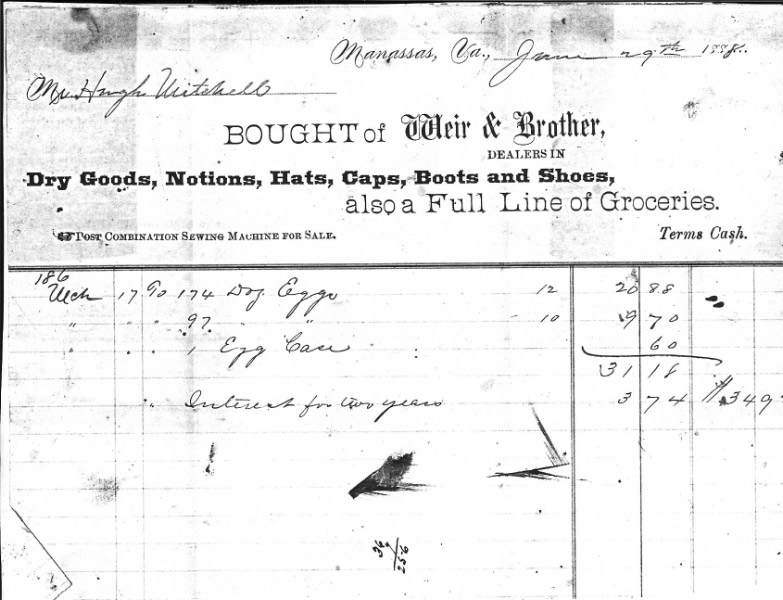 Manassas, Va., June 29th 1888.
Mr Hugh Mitchell
BOUGHT of Weir & Brother,
DEALERS IN
Dry Goods, Notions, Hats, Caps, Boots and Shoes,
also a Full Line of Groceries.
POST COMBINATION SEWING MACHINE FOR SALE. Terms Cash.
186
Mch 17 To 174 Doz. Eggs 12 20 88
" " " 97 " " 10 9 70
" " " 1 Egg Case 60
31 18
" Interest for two years 3 74 349
36
256